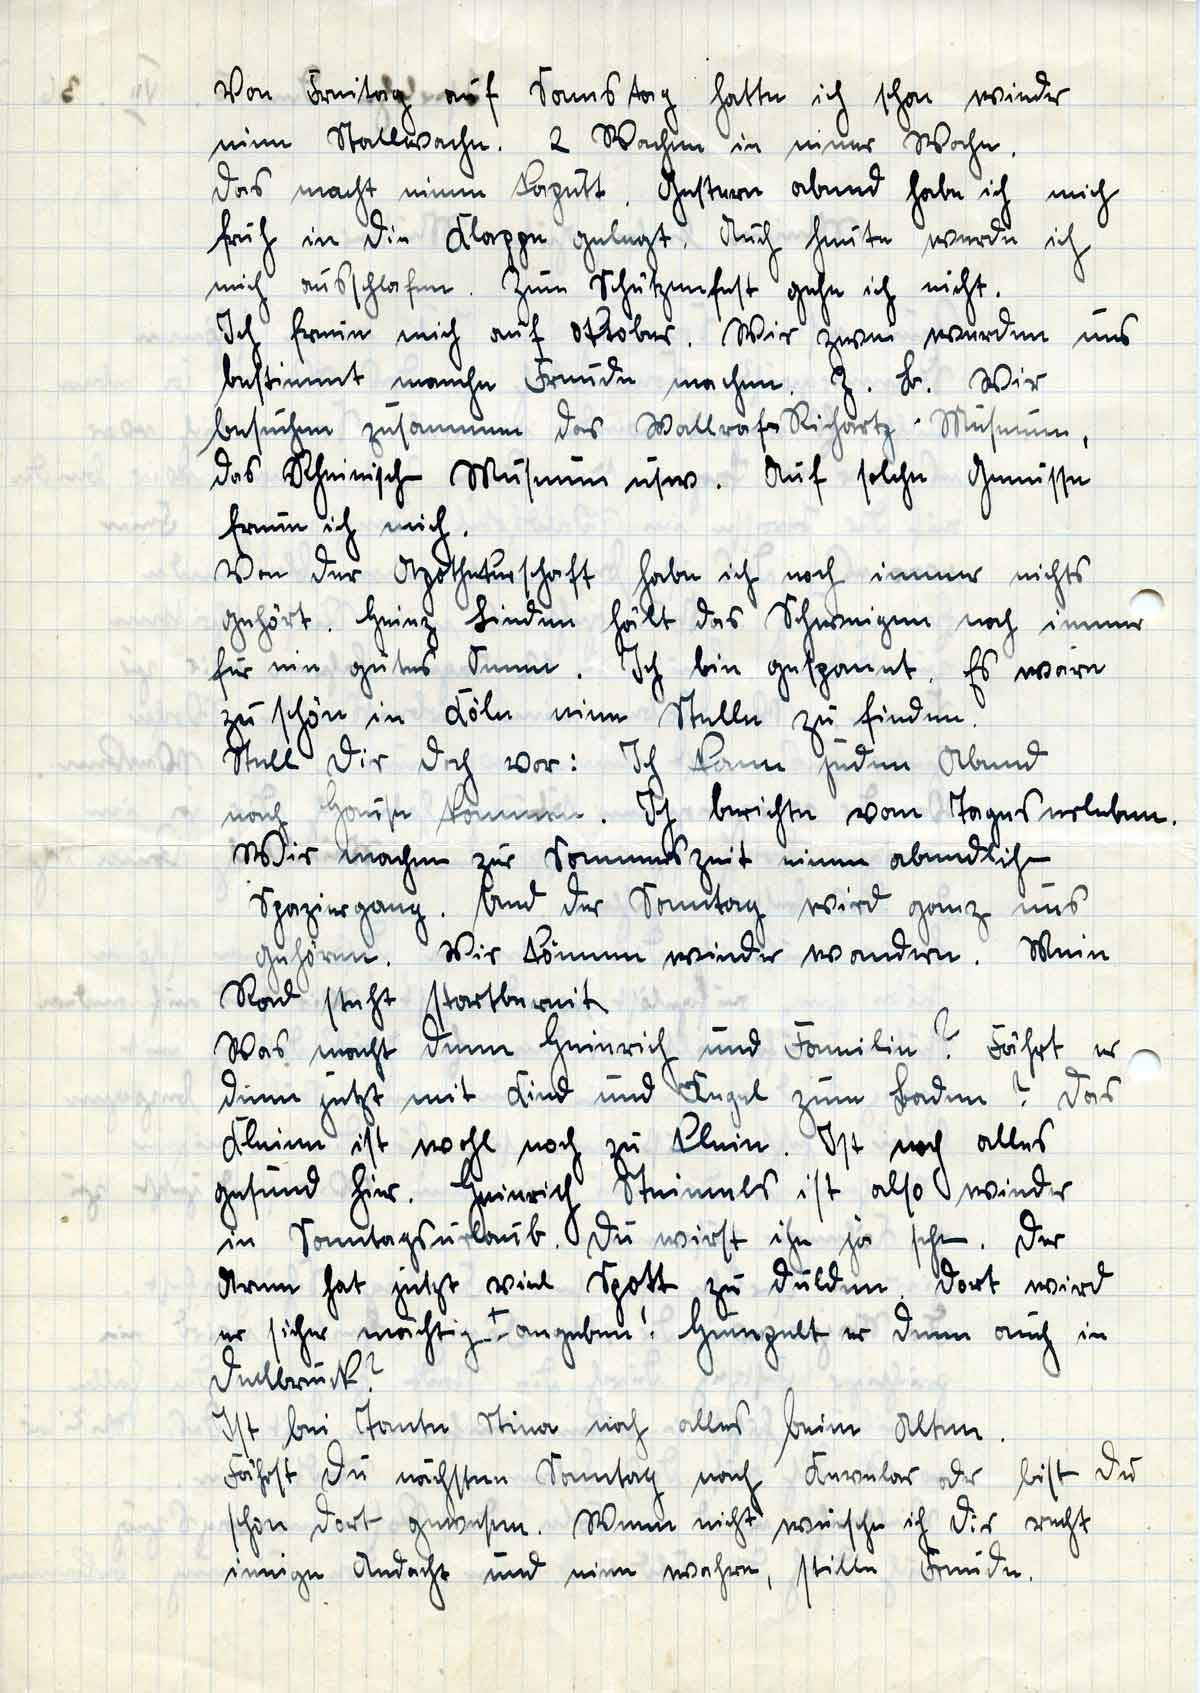 Von Freitag auf Samstag hatte ich schon wieder
eine Stallwache. 2 Wachen in einer Woche.
Das macht einen kaputt. Gestern abend habe ich mich
früh in die Klappe gelegt. Auch heute werde ich
mich ausschlafen. Zum Schützenfest gehe ich nicht.
Ich freue mich auf Oktober. Wir zwei werden uns
bestimmt manche Freude machen. Z. B. Wir
besuchen zusammen das Wallraf-Richartz-Museum,
das Rheinisch Museum usw. Auf solche Genüsse
freue ich mich.
Von der Apothekerschaft habe ich noch immer nichts
gehört. Heinz Linden hält das Schweigen noch immer
für ein gutes Omen. Ich bin gespannt. Es wäre
zu schön in Köln eine Stelle zu finden.
Stell Dir doch vor: Ich kann jeden Abend
nach Hause kommen. Ich berichte vom Tageserleben.
Wir machen zur Sommerszeit einen abendlich
Spaziergang. Und der Sonntag wird ganz uns
gehören. Wir können wieder wandern. Mein
Rad steht startbereit
Was macht denn Heinrich und Familie? Fährt er
denn jetzt mit Kind und Kegel zum Baden? Das
Kleine ist wohl noch zu klein. Ist noch alles
gesund hier. Heinrich Steimels ist also wieder
in Sonntagsurlaub. Du wirst ihn ja sehn. Der
Arme hat jetzt viel Spott zu dulden. Dort wird
er sicher mächtig angeben! Humpelt er denn auch in
Dellbrück?
Ist bei Tante Stina noch alles beim Alten.
Fährst Du nächsten Sonntag nach Kevelar oder bist Du
schon dort gewesen. Wenn nicht wünsche ich Dir recht
innige Andacht und eine wahre, stille Freude.